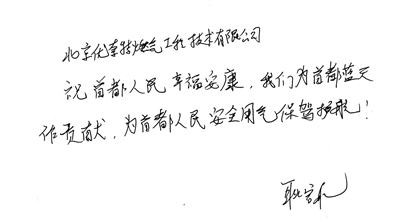 北京优奈特燃气工程技术有限公司
祝首都人民幸福安康，我们为首都蓝天
作贡献，为首都人民安全用气保驾护航！